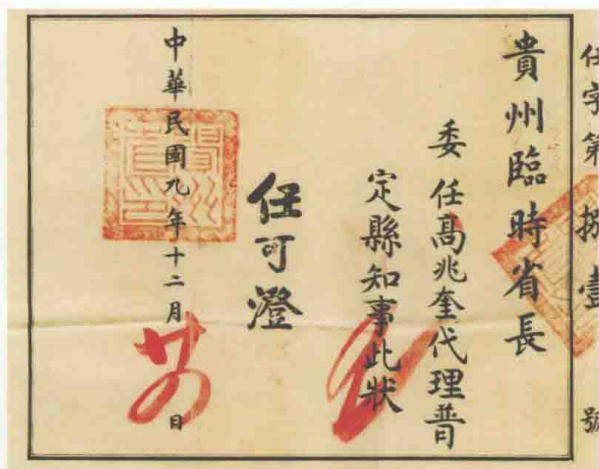 任字第捌壹號
貴州臨時省長
委任高兆奎代理普
定縣知事此狀
任可澄
中華民國九年十二月 日